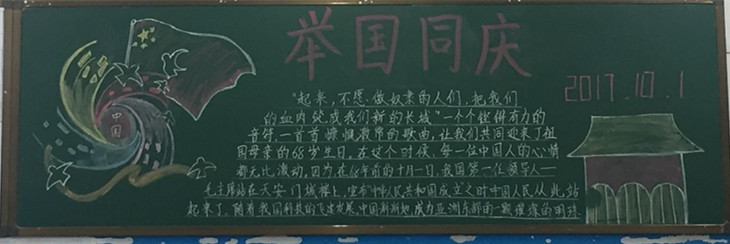 举国同庆
2017.10.1
中国
"起来,不愿做奴隶的人们,把我们
的血肉筑成我们新的长城"一个个铿锵有力的
音符,一首首慷慨激昂的歌曲,让我们共同迎来了祖
国母亲的68岁生日。在这个时候,每一位中国人的心情
都无比激动,因为在68年前的十月一日,我国第一任领导人—
毛主席站在天安门城楼上,宣布中华人民共和国成立之时中国人民从此站
起来了。随着我国科技的飞速发展,中国渐渐地成为亚洲东部的一颗璀璨的明珠